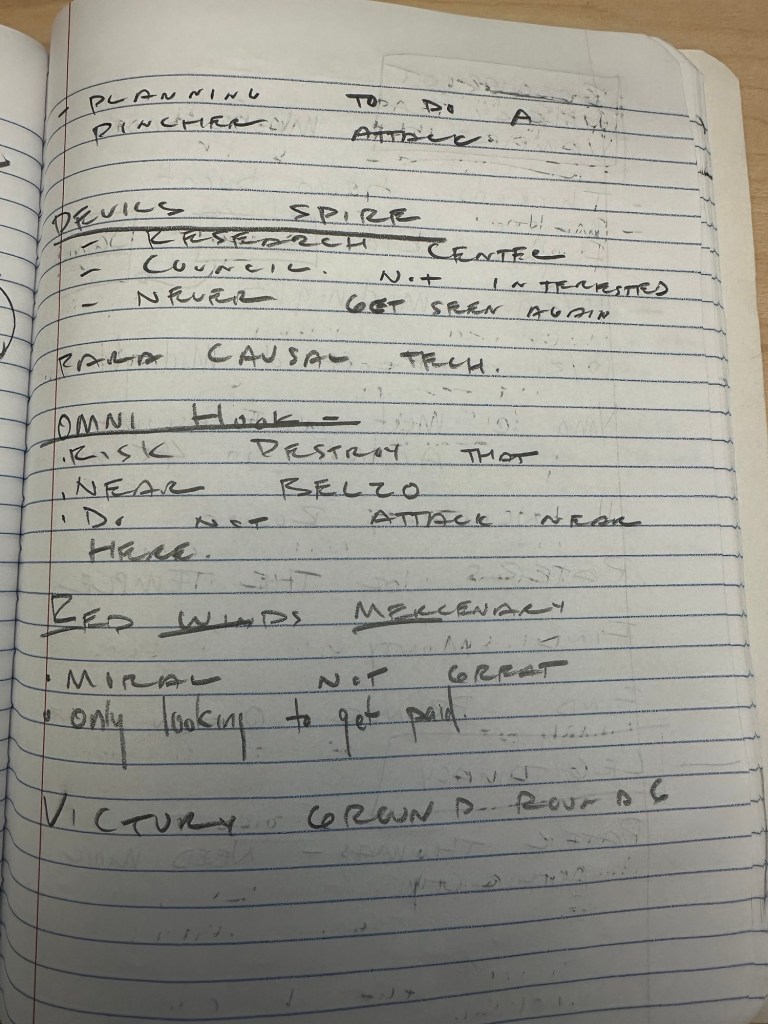 - PLANNING TO DO A
PINCHER ATTACK.
DEVILS SPIRE
- RESEARCH CENTER
- COUNCIL. NOT INTERRESTED
- NEVER GET SEEN AGAIN
PARA CAUSAL TECH.
OMNI HOOK -
. RISK DESTROY THAT
. NEAR BELZO
. DO NOT ATTACK NEAR
HERE.
RED WINDS MERCENARY
. MORAL NOT GREAT
. only looking to get paid.
VICTURY GROUND ROUND 6